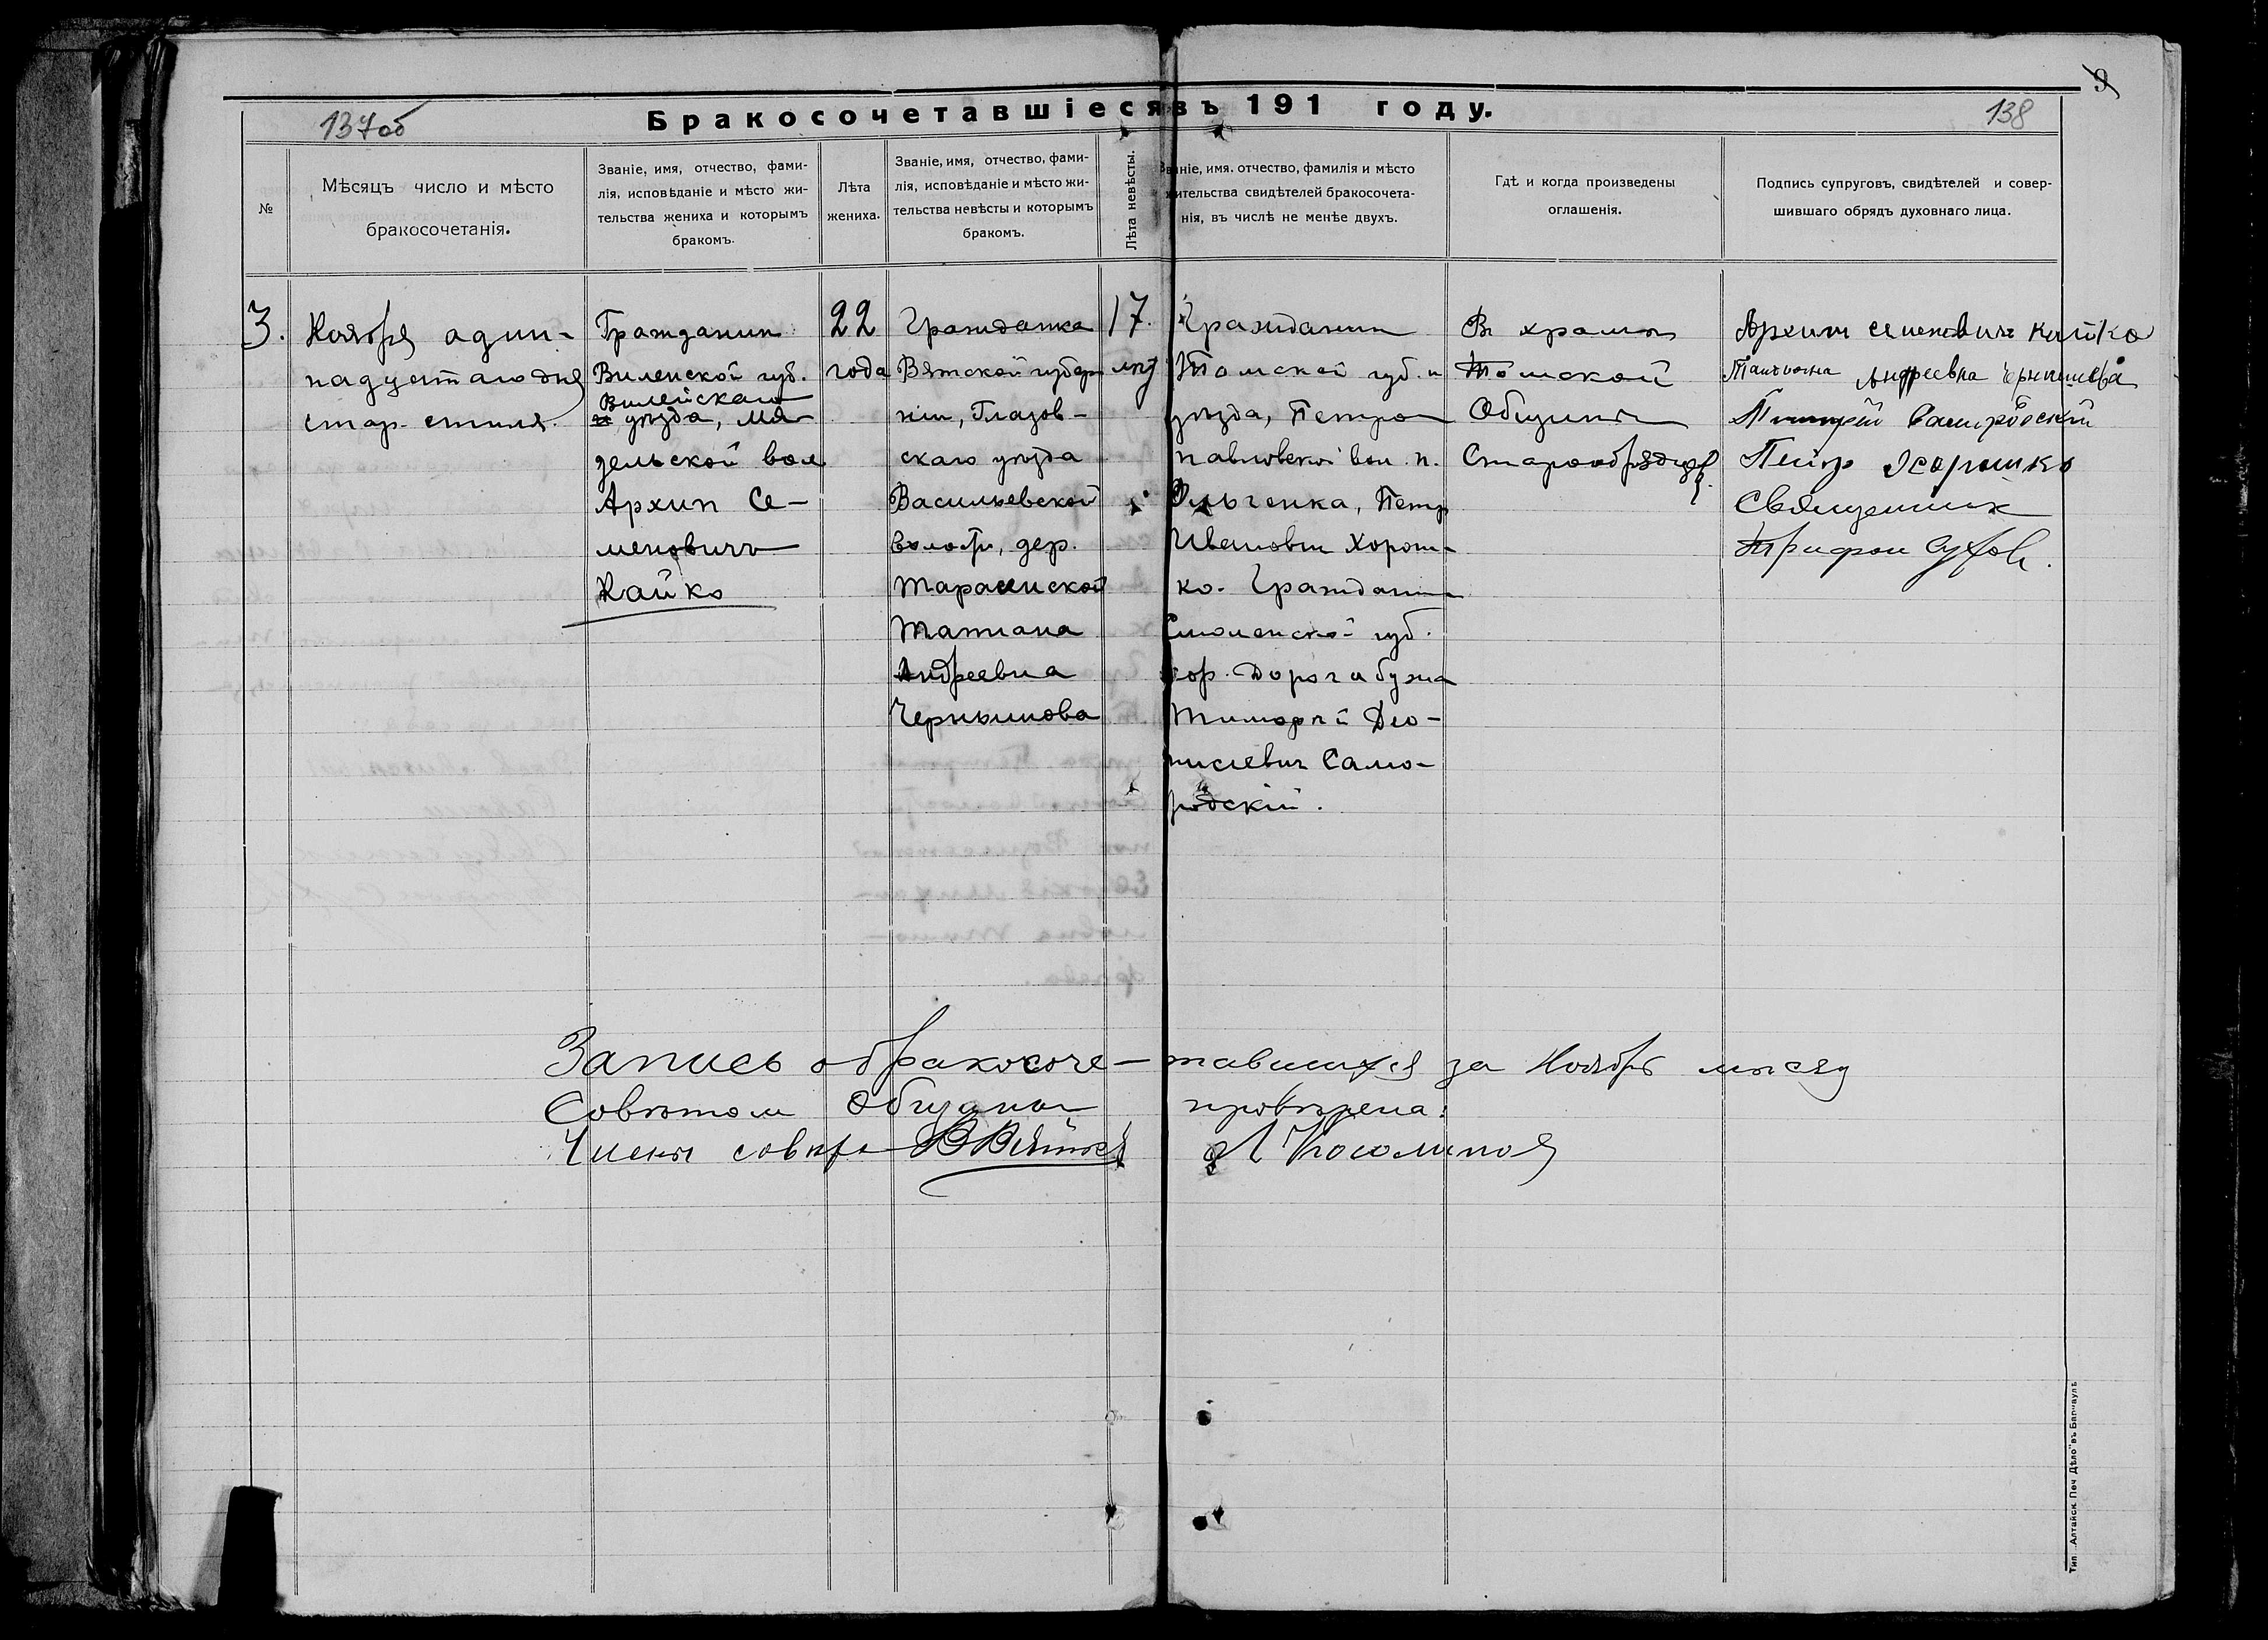 9
137об
Бракосочетавшіеся въ 191 году.
138
№
Мѣсяцъ число и мѣсто
бракосочетанія.
Званіе, имя, отчество, фами-
лія, исповѣданіе и мѣсто жи-
тельства жениха и которымъ
бракомъ.
Лѣта
жениха.
Званіе, имя, отчество, фами-
лія, исповѣданіе и мѣсто жи-
тельства невѣсты и которымъ
бракомъ.
Лѣта невѣсты.
Званіе, имя. отчество, фамилія и мѣсто
жительства свидѣтелей бракосочета-
нія, въ числѣ не менѣе двухъ.
Гдѣ и когда произведены
оглашенія.
Подпись супруговъ, свидѣтелей и совер-
шившаго обрядъ духовнаго лица.
3.
Ноября один-
надцатаго дня
стар. стиля.
Гражданин
Виленской губ.
Вилейскаго
уѣзда, Мя-
дельской вол.
Архип Се-
меновичъ
Кайко
22
года
Гражданка
Вятской губер
ніи, Глазов-
скаго уѣзда
Васильевской
волости, дер.
Тараминской
Татиана
Андреевна
Чернышова
17.
лѣт
Гражданин
Томской губ. и
уѣзда, Петро
павловской вол. п.
Ольгенка, Петр
Иванович Хорош-
ко. Гражданин
Смоленской губ.
гор. Дорогабужа
Тимофей Део-
нисіевич Само-
родскій.
Въ храмѣ
Томской
Общины
Старообрядцев.
Архип Семеновичъ Кайко
Татьяна Андреевна Чернышева
Самородский
Петр Хорошко
Священник
Трифон Сухов.
Запись о бракосоче-тавшихся за Ноябрь мѣсяц
Совѣтом Общины провѣрена.
Члены совѣта
Тип. „Алтайск. Печ. Дѣло" въ Барнаулѣ